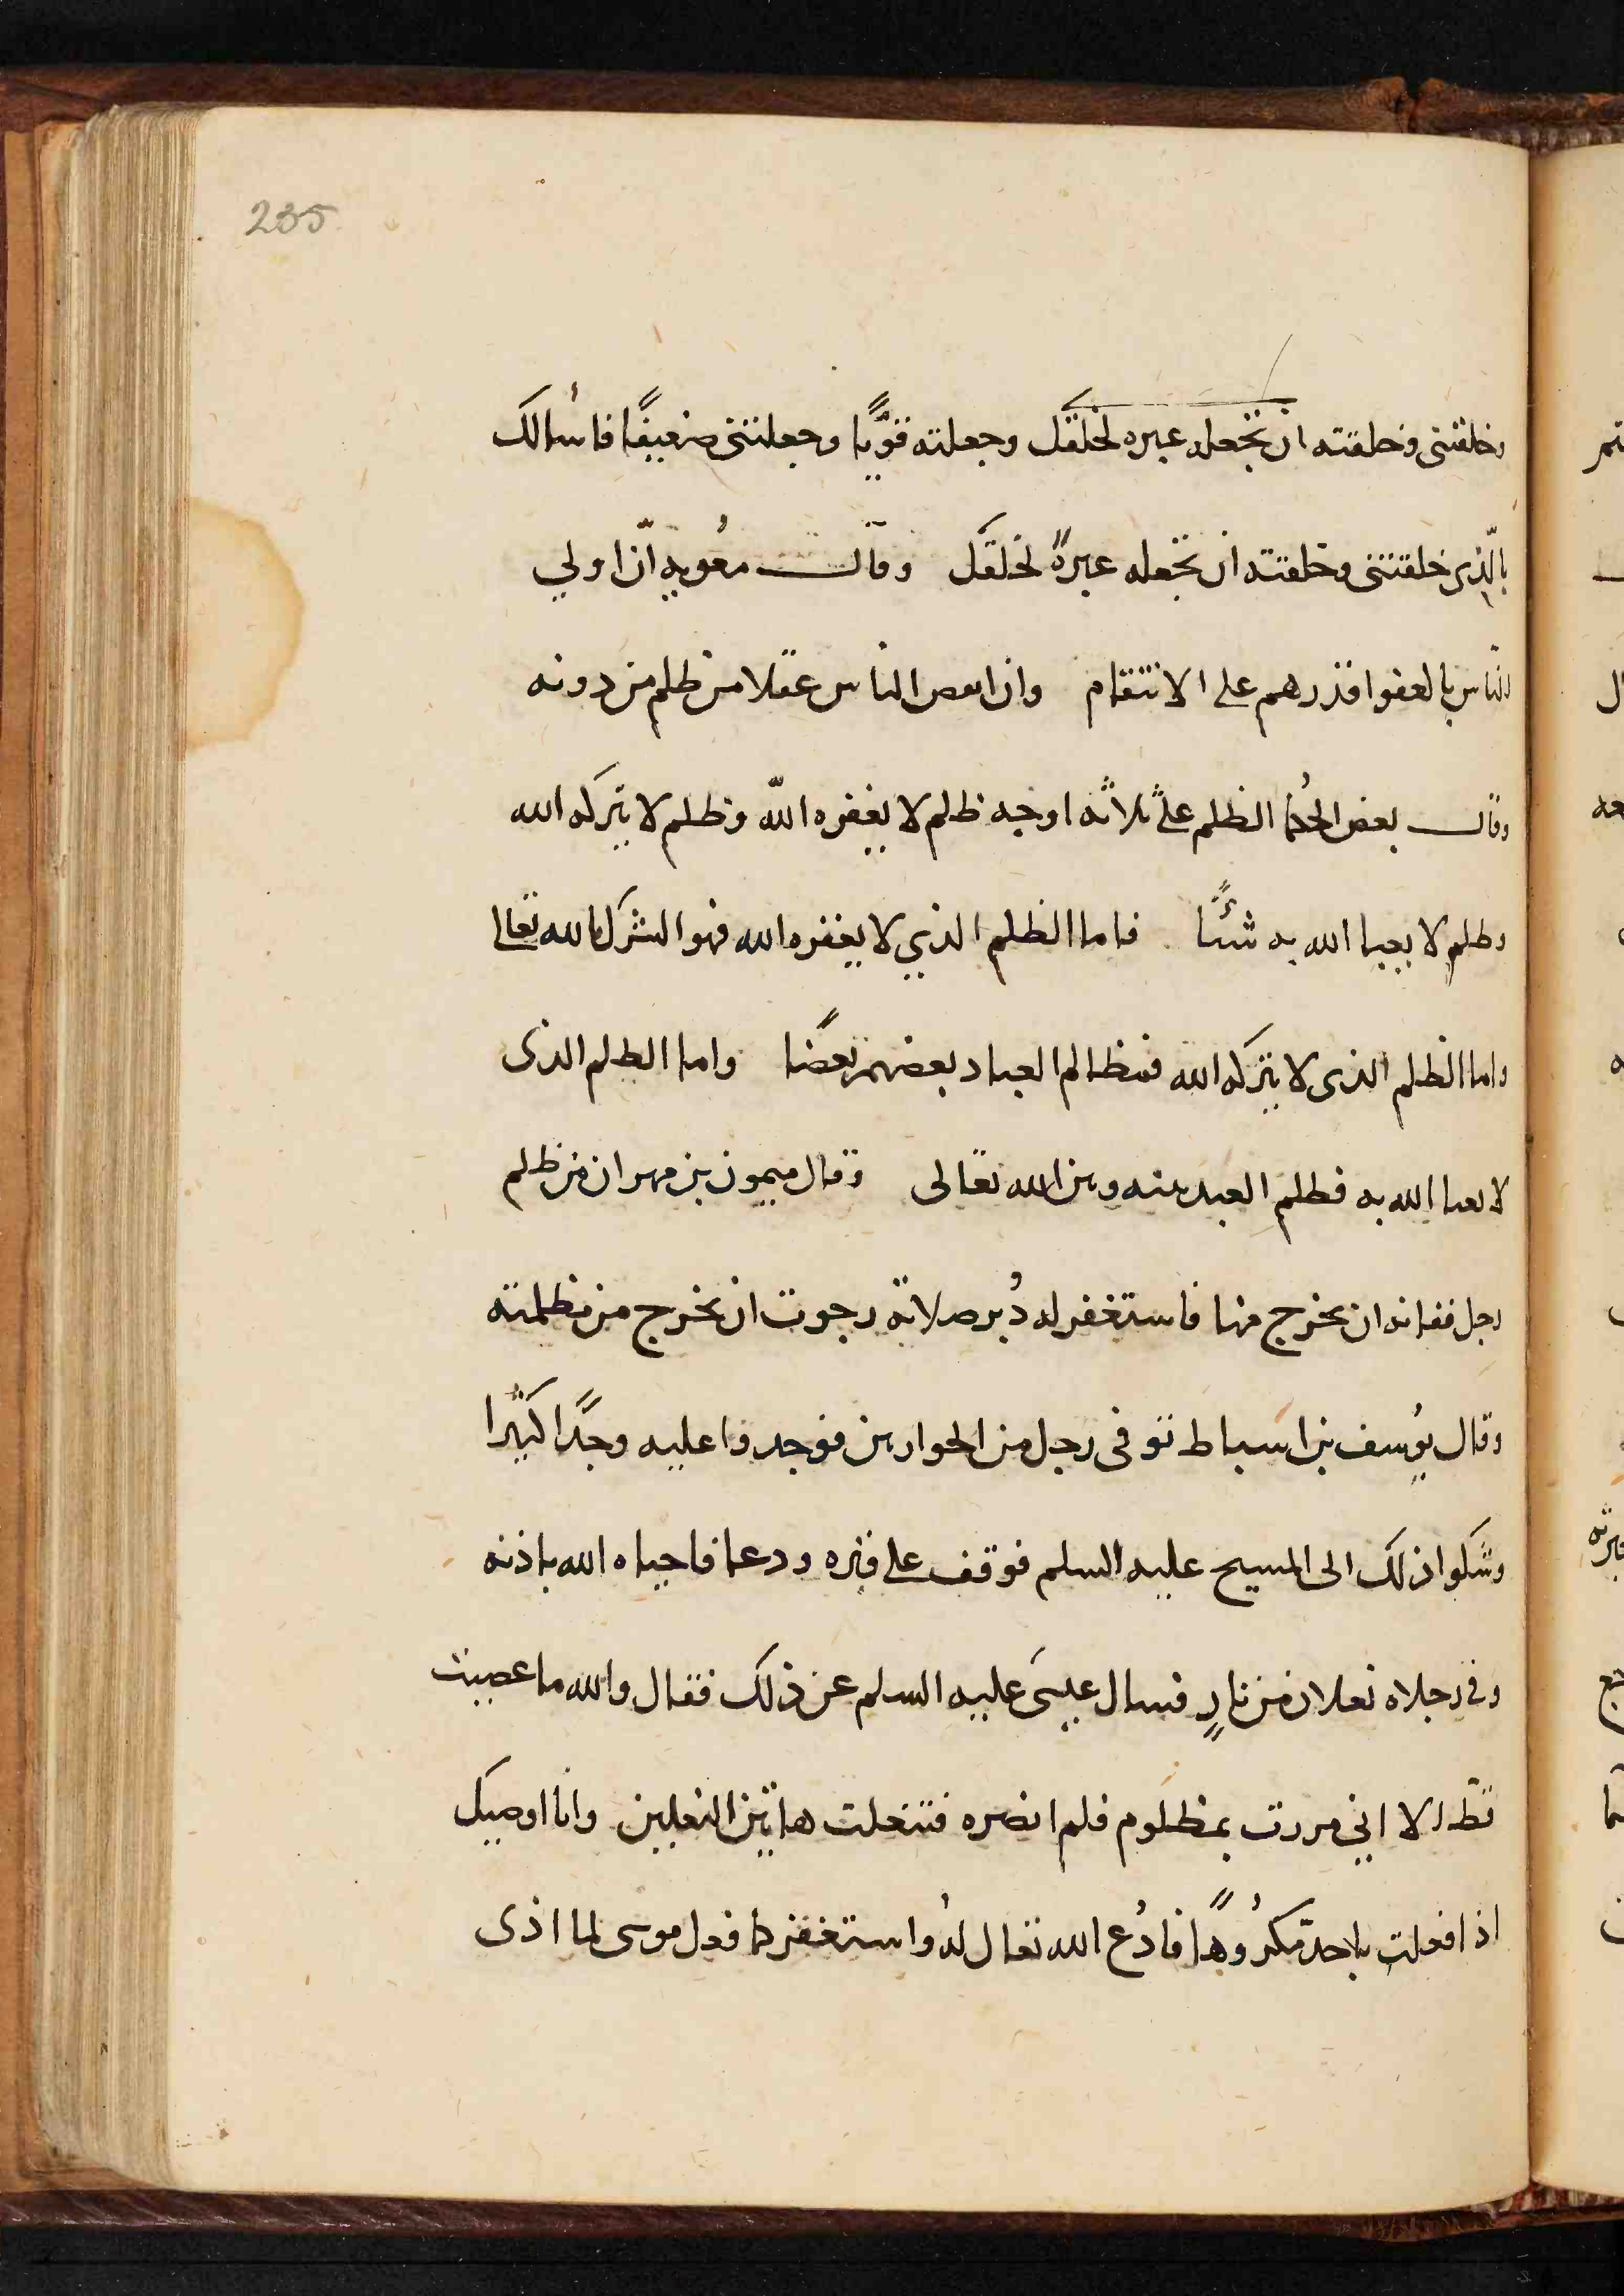 235
وخلقتنى وخلقته ان تجعله عبره لخلقك وجعلته قوّيًا وجعلتنى ضعيفًا فاسٔالك
بالّذى خلقتنى وخلقته ان تجعله عبرةً لخلقك وقال معُويه انّ اولي
الناس بالعفو اقدرهم على الانتقام وان انعص الناس عقلا من ظلم من دونه
وقال بعض الحُكما الظلم علىٰ ثلاثه اوجه ظلم لا يغفره اللّه وظلم لا يتركه الله
وظلم لا يعبا الله به شئًا فاما الظلم الذي لا يغفره الله فهو الشرك بالله تعالى
واما الظلم الذى لا يتركه الله فمظالم العباد بعضهم بعضًا واما الظلم الذى
لا يعبا الله به فظلم العبد بينه وبين الله تعالى وقال ميمون بن مهران من ظلم
رجل ففاته ان يخرج منها فاستغفر له دُبر صلاته رجوت ان يخرج من مظلمته
وقال يوُسف بن اسباط توفى رجل من الحواريين فوجدوا عليه وجدًا كثيرًا
وشكوا ذلك الى المسيح عليه السلم فوقف على قبره ودعا فاحياه الله باذنه
وفى رجلاه نعلان من نارٍ فسال عيسىَ عليه السلم عن ذلك فقال والله ما عصيت
قط الا اني مررت بمظلوم فلم انصره فتنعلت هاتين النعلين وانا اوصيك
اذا فعلت باحد مكرُوهًا فادُع الله تعال لهُ واستغفر كما فعل موسى لما اذى